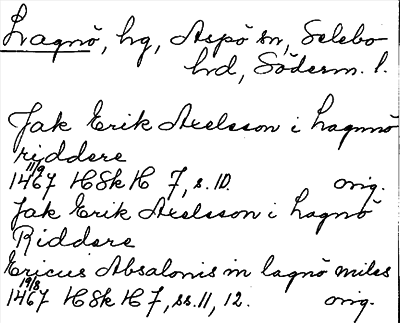 Lagnö, hg, Aspö sn, Selebo
hd, Söderm. l.
Jak Erik Axelsson i Lagnnö
riddere
11/9
1467 HSkH 7, s. 10. orig.
Jak Erik Axelsson i Lagnö
Riddere
Ericus Absalonis in lagnö miles
19/8
1467 HSkH 7, ss. 11, 12. orig.